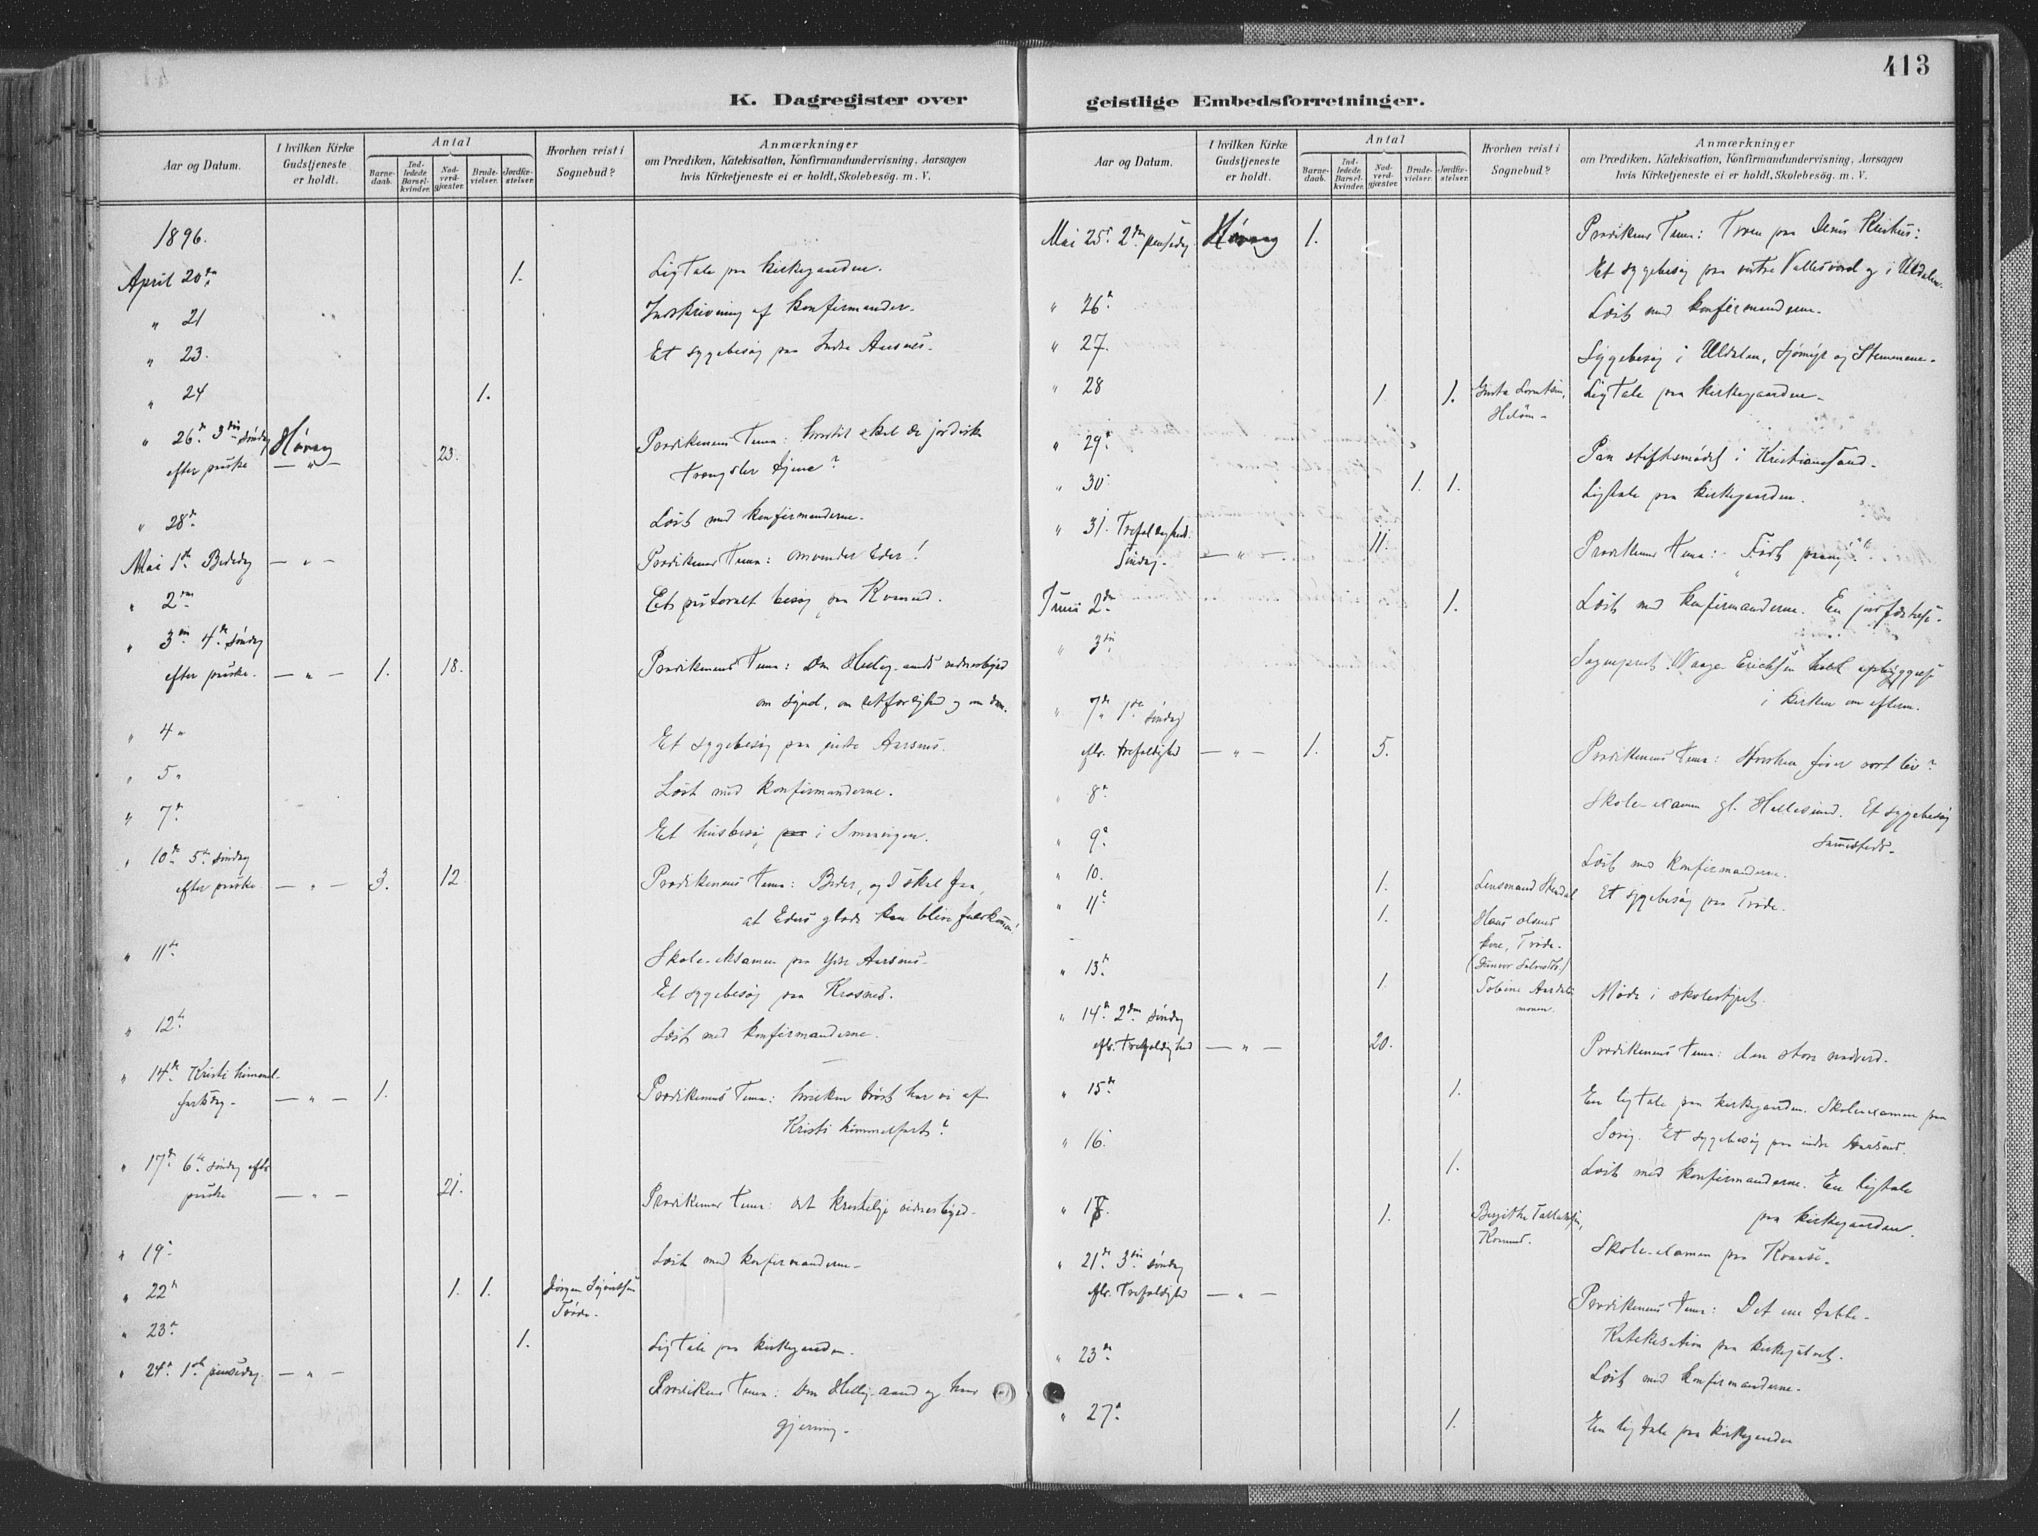 413
K. Dagregister over
geistlige Embedsforretninger.
Aar og Datum.
I hvilken Kirke Gudstjeneste er holdt.
Antal
Barnedaab.
Indledede Barselkvinder.
Nadverdgjæster.
Brudevielser.
Jordfæstelser.
Hvorhen reist i Sognebud?
Anmærkninger
om Prædiken, Katekisation, Konfirmandundervisning, Aarsagen
hvis Kirketjeneste ei er holdt, Skolebesøg. m. V.
1896.
April 20de 1. Ligtale paa kirkegaarden.
" 21 Indskrivning af konfirmander.
" 23. Et sygebesøg paa Indre Aarsnes.
" 24 1.
" 26de 3die søndag Høvaag Prædikenens Tema: hvortil skal de jordiske
efter paaske — " — 23. trængsler tjene?
" 28de Læst med konfirmanderne.
Mai 1ste Bededag — " — Prædikenens Tema: omvender Eder!
" 2den Et pastoralt besøg paa
" 3die 4de søndag
efter paaske. — " — 1. 18. Prædikenens Tema: Den Hellig-aands vidnesbyrd
om synd, om retfærdighed og om dom.
" 4 " Et sygebesøg paa indre Aarsnes.
" 5 " Læst med konfirmanderne.
" 7de Et husbesøg paa i
" 10de 5te søndag
efter paaske — " — 3. 12 Prædikenens Tema: Beder, og I skal faa,
at Eders glæde kan blive fuldkommen!
" 11te Skole-eksamen paa Ydre Aarsnes.
Et sygebesøg paa Krosnes.
" 12te Læst med konfirmanderne.
" 14de Kristi himmel-
fartsdag. — " — 1. Prædikenens Tema: hvilken trøst har vi af
Kristi himmelfart?
" 17de 6te søndag efter
paaske — " — 21. Prædikenens Tema: det kristelige vidnesbyrd.
" 19de Læst med konfirmanderne.
" 22de 1. 1. Jørgen
" 23de 1. Ligtale paa kirkegaarden.
" 24de 1ste pinsedag. — " — Prædikens Tema: Den Hellig-aand og hans
gjerning.
Aar og Datum.
I hvilken Kirke Gudstjeneste er holdt.
Antal
Barnedaab.
Indledede Barselkvinder.
Nadverdgjæster.
Brudevielser.
Jordfæstelser.
Hvorhen reist i Sognebud?
Anmærkninger
om Prædiken, Katekisation, Konfirmandundervisning, Aarsagen
hvis Kirketjeneste ei er holdt, Skolebesøg. m. V.
Mai 25de 2den pinsedag Høvaag 1. Prædikens Tema: Troen paa Jesus Kristus:
Et sygebesøg paa vestre Vallesverd og i Uldalen.
" 26de Læst med konfirmanderne.
" 27. Sygebesøg i Uldalen, og Stemmene.
" 28 1 1. Ligtale paa kirkegaarden.
" 29de Paa stiftsmødet i Kristianssand.
" 30 1. 1. Ligtale paa kirkegaarden.
" 31. Trefoldigheds-
Søndag. — " — 11. Prædikens Tema: Født paany!
Juni 2den 1. Læst med konfirmanderne. En jordfæstelse.
" 3die Sogneprest Erichsen holdt opbyggelse
i kirken om efterm.
" 7de 1ste søndag
eftr. trefoldighed — " — 1. 5. Prædikenens Tema: Hvorhen fører vort liv?
" 8de Skole-examen gl. Hellesund. Et sygebesøg
sammesteds.
" 9de Læst med konfirmanderne.
" 10. 1. Lensmand Et sygebesøg paa
" 11te 1. Hans Olsens
kone,
" 13de 1. Møde i skolestyret.
" 14de 2den søndag
eftr. Trefoldighed — " — 20. Prædikenens Tema: den store nadverd.
" 15de 1. En ligtale paa kirkegaarden. Skoleexamen paa
Et sygebesøg paa indre Aarsnes.
" 16. 1. Læst med konfirmanderne. En ligtale
paa kirkegaarden.
" 17. 1. Birgithe Skole-examen paa
" 21de 3die søndag
eftr. Trefoldighed — " — Prædikenens Tema: Det ene tabte.
Katekisation paa kirkegulvet.
" 23de Læst med konfirmanderne.
" 27de 1. En ligtale paa kirkegaarden